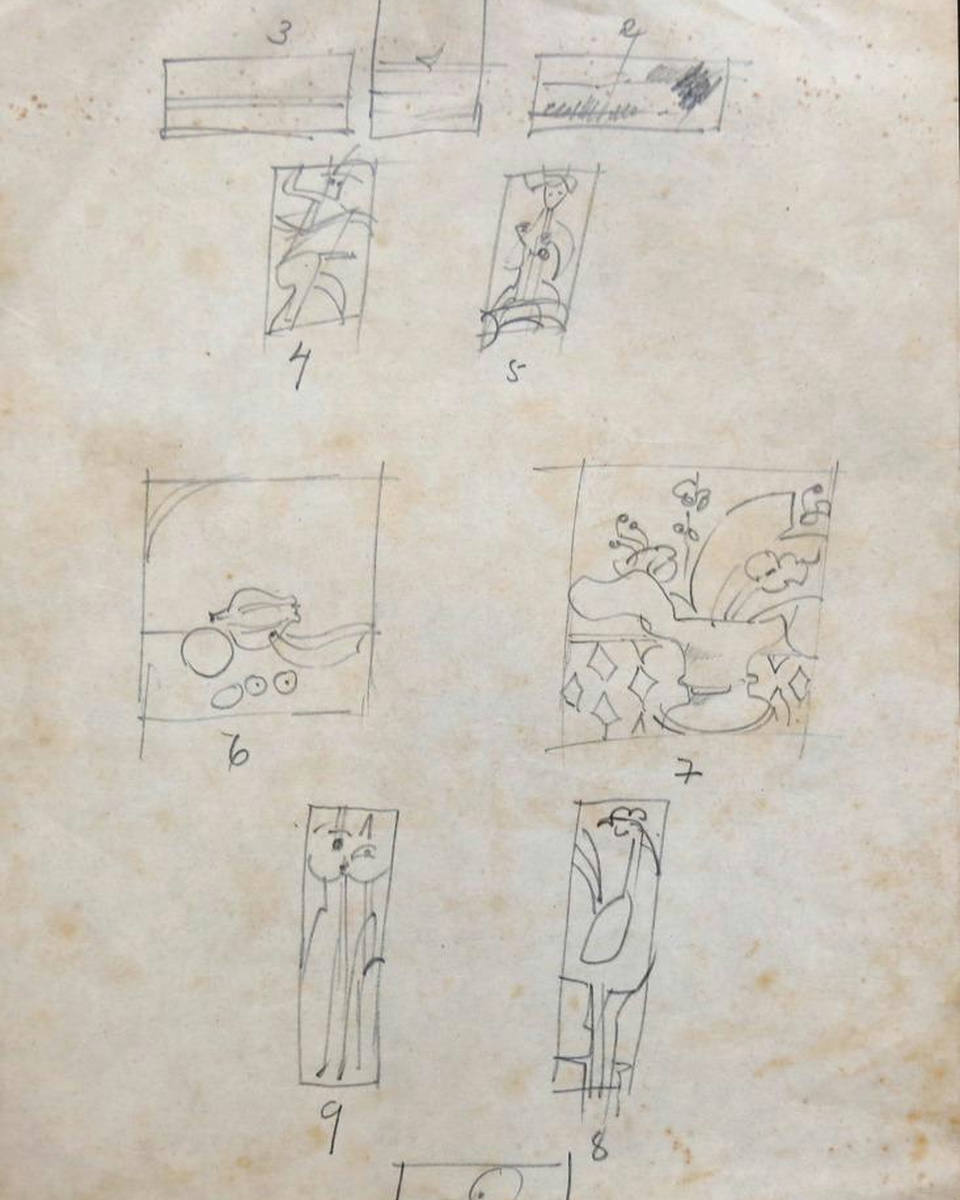 3 2
4 5
6 7
9 8